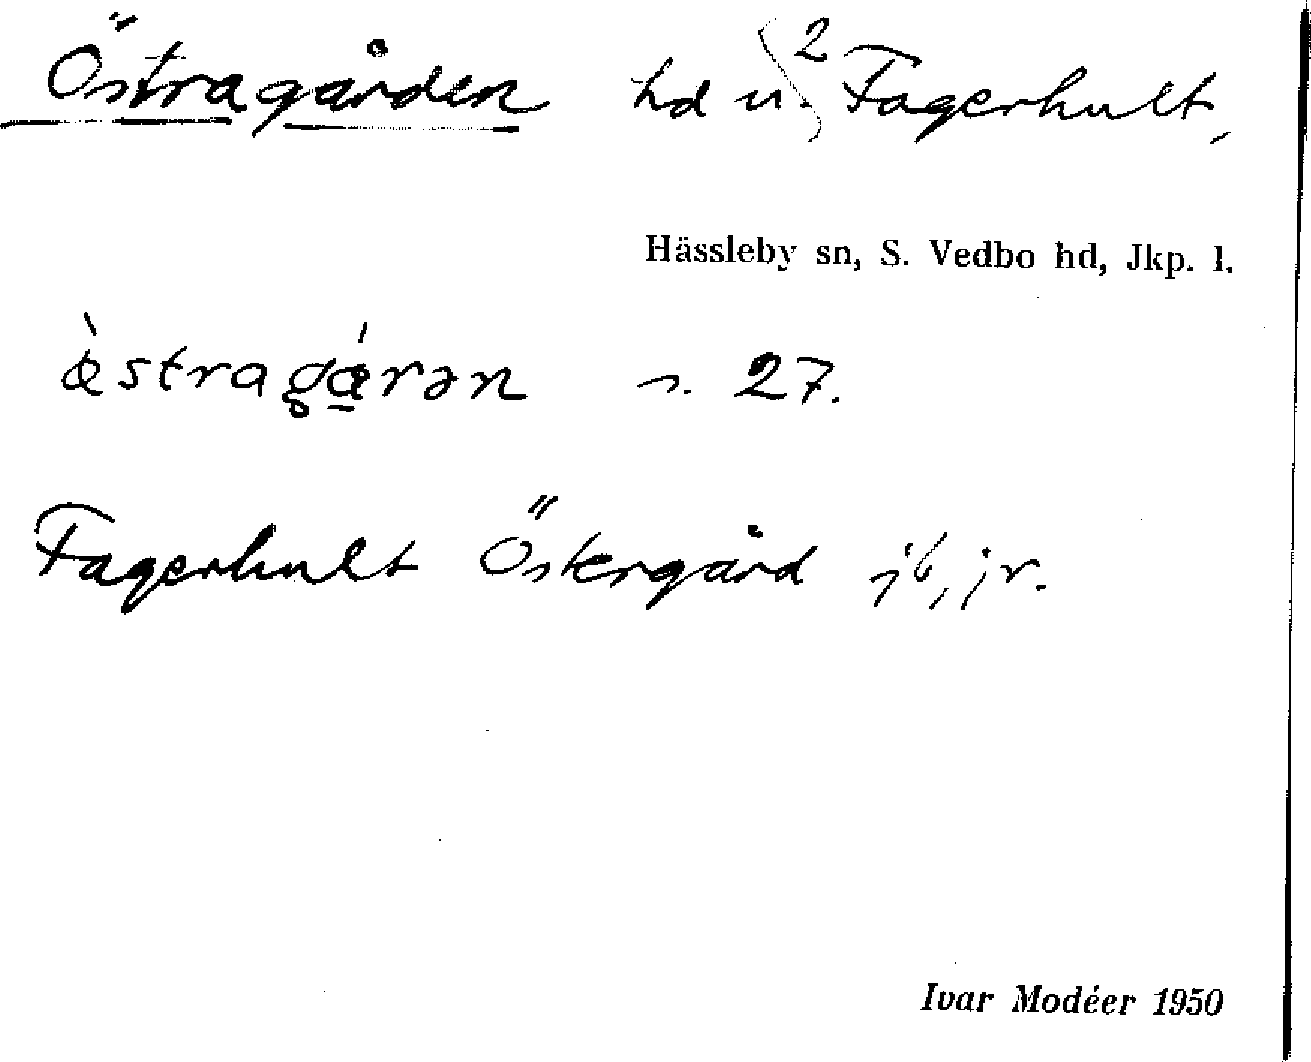 Östragården hd u. 2 Fagerhult,
Hässleby sn, S. Vedbo hd, Jkp. l.
æ̀stragárən s. 27.
Fagerhult Östergård jb, jr.
Ivar Modéer 1950